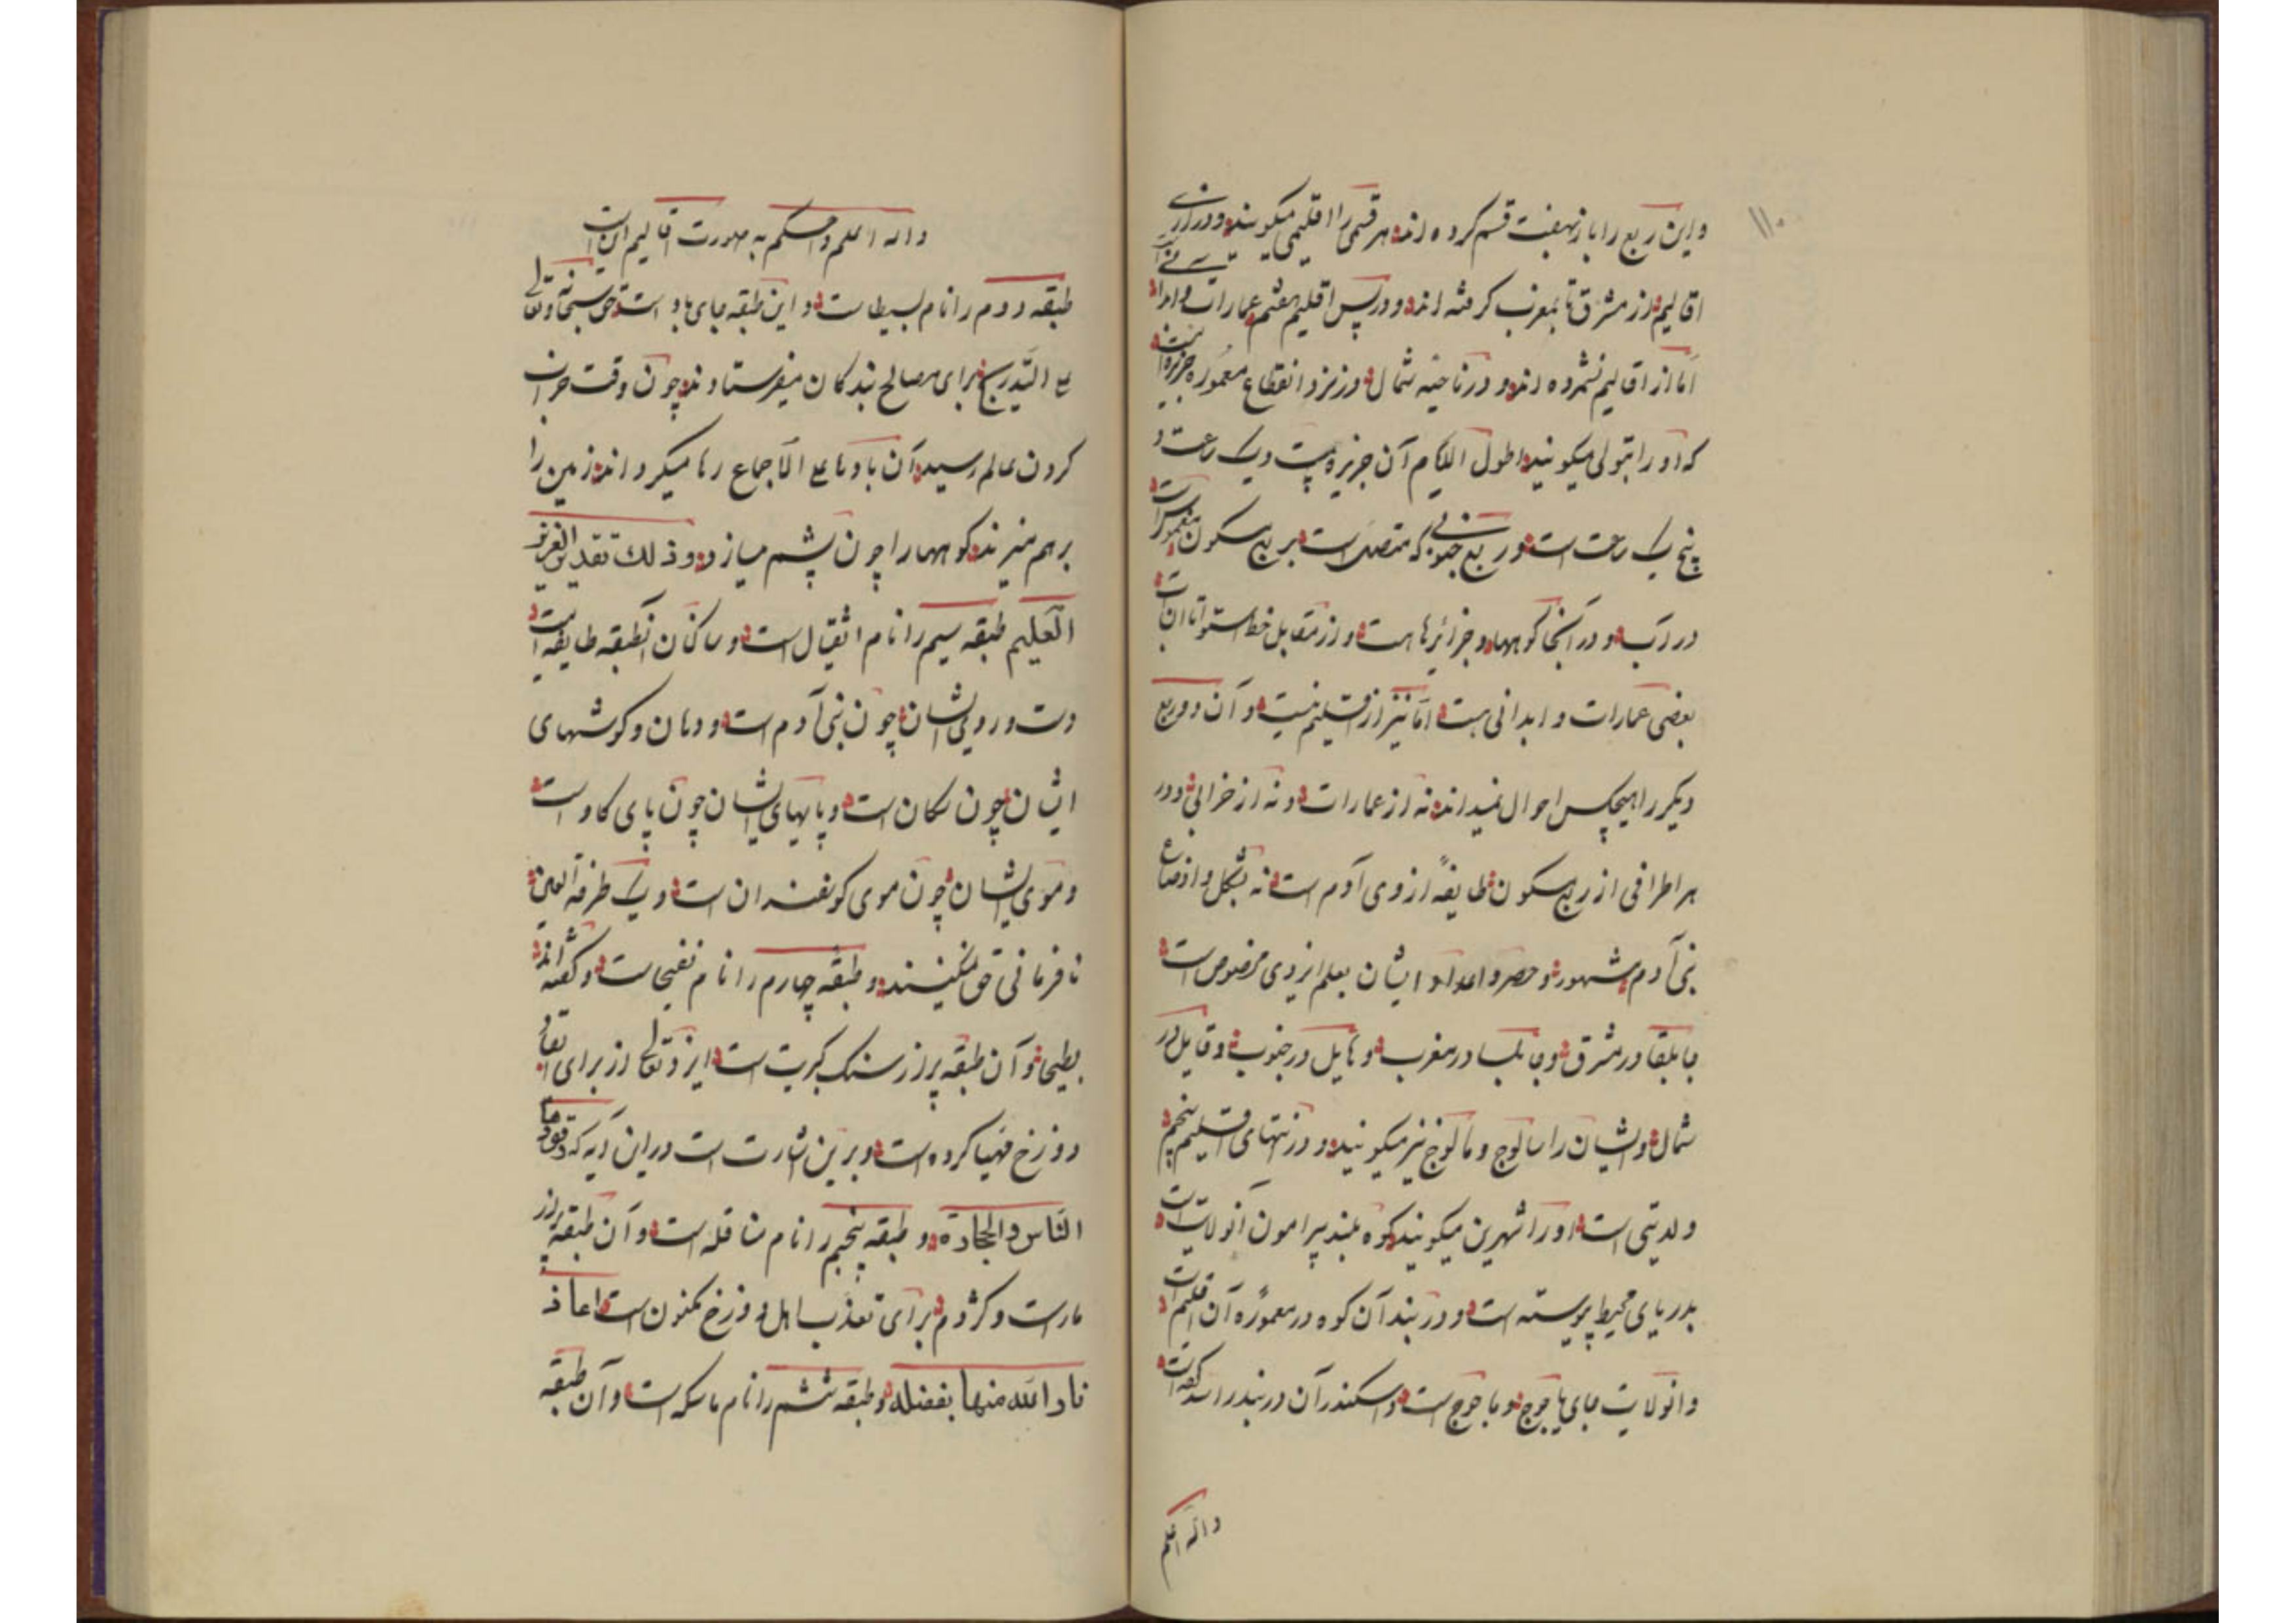 ۱۱۰
واین ربع را باز بهفت قسم کرده اند هر قسمی را اقلیمی میگویند و درازی
اقالیم از مشرق تا بمغرب گرفته اند و در پس اقلیم هفتم عمارات
اما از اقالیم نشمرده اند و در ناحیه شمال و در نزد انقطاع معموره جزیره
که او را تولی میگویند اطول الایام آن جزیره بیست ویک ساعت و
پنج یک ساعت است و ربع جنوبی که متصل است بربع مسکون مغمور است
در آب و در آنجا کوهها و جزائرها هست و از مقابل خط استوا تا آن
بعضی عمارات و ابدانی هست اما نیز از اقلیم نیست و آن دو ربع
دیگر را هیچکس احوال نمیداند نه از عمارات و نه از خرابی و در
هر اطرافی از ربع مسکون طایفهٔ از وی آدم است نه بشکل و اوضاع
بنی آدم مشهور و حصر و اعداد ایشان بعلم ایزدی مخصوص است
جابلقا در مشرق و جابلسا در مغرب و هابیل در جنوب و قابیل در
شمال و ایشان را سالوج و مالوج نیز میگویند و در انتهای اقلیم پنجم
ولایتی است او را شهرین میگویند کوه بلند پیرامون آنولایت است
بدریای محیط پیوسته است و دربند آن کوه در معموره آن اقلیم است
وانولایت جای یاجوج و ماجوج است و اسکندر آن دربند را سد گفته است
والله اعلم
والله اعلم واحکم به صورت اقالیم این است
طبقه دوم را نام بسیط است و این طبقه جای باد است حق سبحانه وتعالی
علی التدریج برای مصالح بندگان میفرستادند چون وقت خراب
کردن عالم رسید آن بادها علی الاجماع رها میگرداند زمین را
برهم میزند کوهها را چون پشم میسازد و ذلك تقدیر العزیز
العلیم طبقه سیم را نام اثقیال است و ساکنان آنطبقه طایفه است
دست و روی ایشان چون بنی آدم است و دهان و گوشهای
ایشان چون سگان است و پایهای ایشان چون پای گاو است
وموی ایشان چون موی گوسفندان است و یک طرفة العین
نافرمانی حق نمیکنند و طبقه چهارم را نام نفیحا است و گفته اند
بطیحا و آن طبقه پر از سنگ کبریت است ایزد تعالی از برای
دوزخ مهیا کرده است و برین اشارت است در این آیه که وقودها
الناس والحجارة و طبقه پنجم را نام مثاقله است و آن طبقه پر از
مار است و کژدم برای تعذیب اهل دوزخ مکنون است اعاذ
نا والله منها بفضله و طبقه ششم را نام ماسکه است و آن طبقه